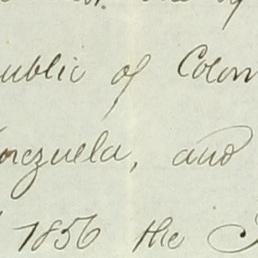 ublic of Colom
enezuela, and
1856 the